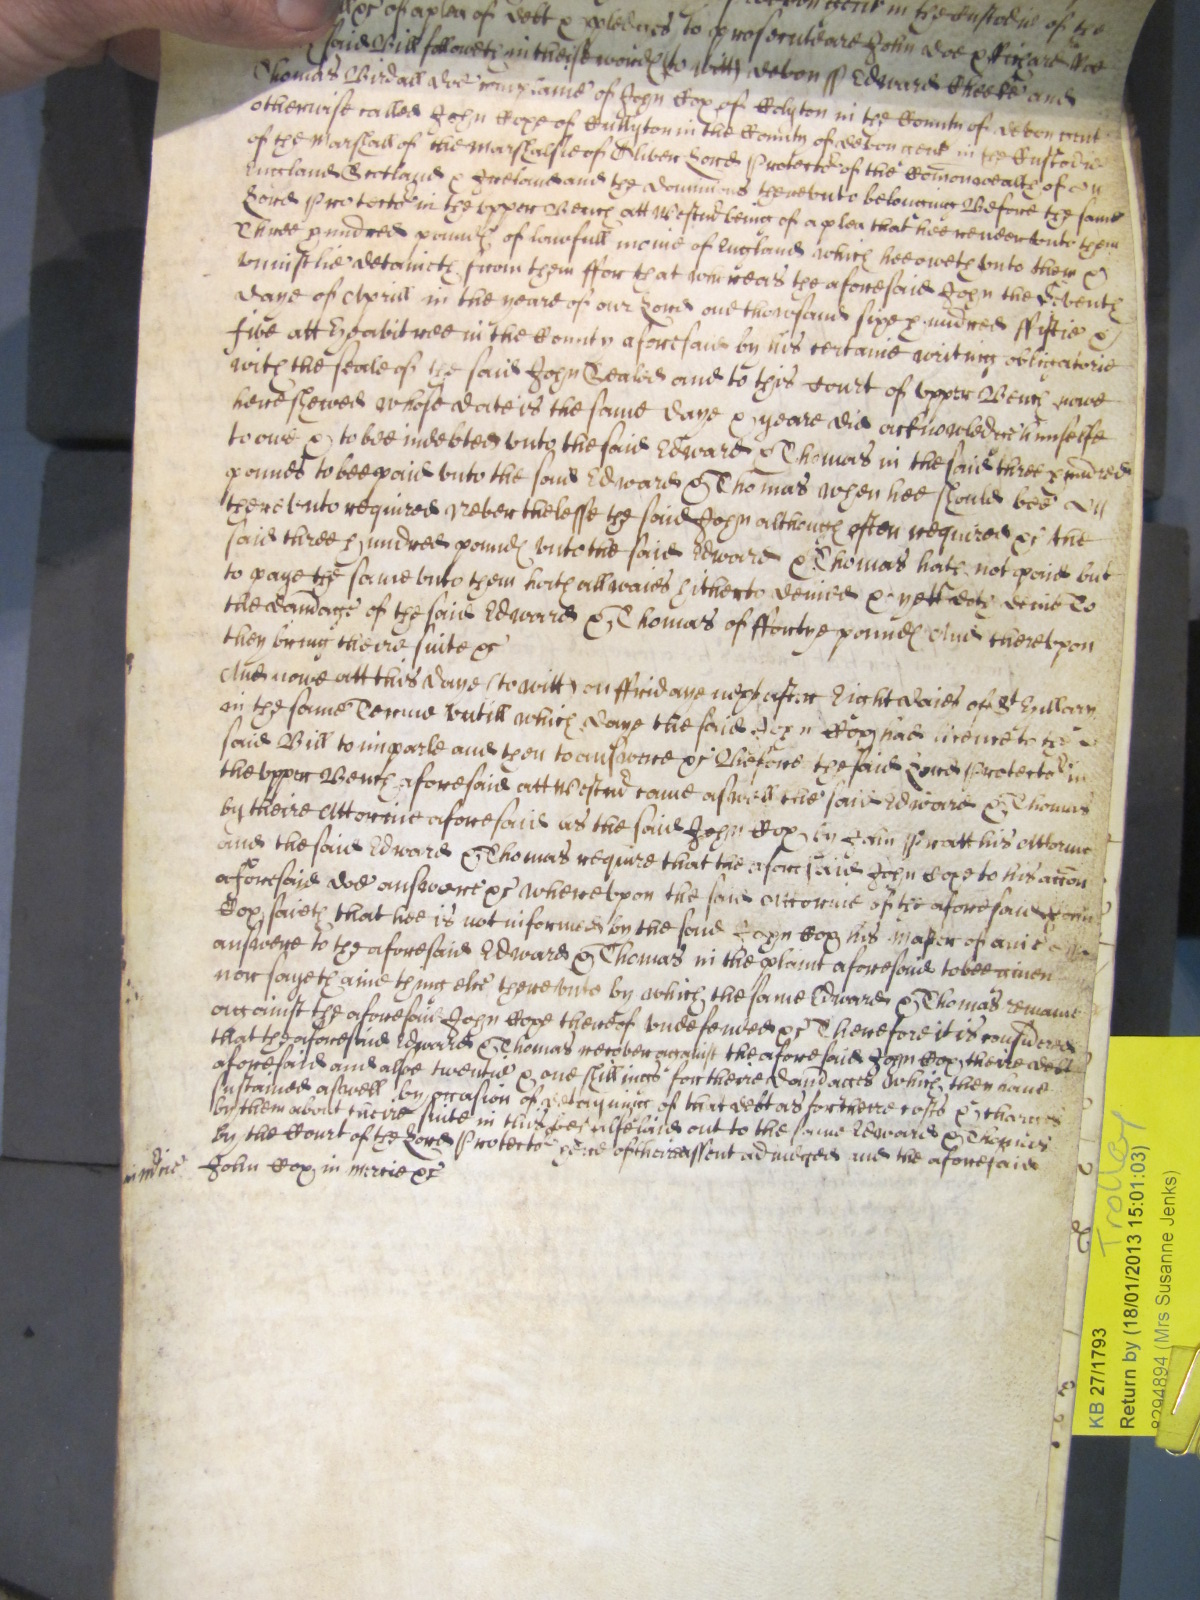 &c of a plea of debt & pledges to prosecute are John Doe & Richard Roe
said Bill followeth in theise words (to witt) Devon ss Edward Cheeke and
Thomas Birdall doe complaine of John Cox of Colyton in the County of Devon gent
otherwise called John Coxe of Cullyton in the County of Devon gent in the Custodie
of the Marshall of the Marshalsie of Oliver Lord Protector of the Comonwealth of
England Scotland & Ireland and the dominions thereunto belonging Before the same
Lord Protector in the upper Bench att Westmr being of a plea that hee render unto them
Three hundred pounds of lawfull monie of England which hee oweth unto them &
uniustlie detaineth from them ffor that whereas the aforesaid John the Seventh
daye of Aprill in the yeare of our Lord one thowsand sixe hundred ffiftie &
five att Heavitree in the County aforesaid by his certaine writing obligatorie
with the seale of the said John Sealed and to this Court of upper Bench nowe
here shewed whose date is the same daye & yeare did acknowledge himselfe
to owe & to bee indebted unto the said Edward & Thomas in the said three hundred
pounds to bee paid unto the said Edward & Thomas when hee should bee
thereunto required Neverthelesse the said John although often required &c the
said three hundred pounds unto the said Edward & Thomas hath not paid but
to paye the same unto them hath allwaies hitherto denied & yett doth denie To
the damage of the said Edward & Thomas of ffortye pounds And thereupon
they bring theire suite &c
And nowe att this daye (to witt) on ffridaye next after Eight daies of St Hillary
in the same Terme untill which daye the said John Cox had licence to the
said Bill to imparle and then to answere &c Before the said Lord Protector in
the upper Bench aforesaid att Westmr came aswell the said Edward & Thomas
by theire Attornie aforesaid as the said John Cox by Pratt his Attornie
and the said Edward & Thomas require that the aforesaid John Coxe to his accon
aforesaid doe answere &c whereupon the said Attornie of the aforesaid John
Cox saieth that hee is not informed by the said John Cox his Master of anie
answere to the aforesaid Edward & Thomas in the plaint aforesaid to bee given
nor sayeth anie thing els thereunto by which the same Edward & Thomas remaine
against the aforesaid John Coxe thereof undefended &c Therefore it is considered
that the aforesaid Edward & Thomas recover against the aforesaid John Cox theire debt
aforesaid and alsoe twentie & one shillings for theire damages which they have
sustained aswell by occasion of detayning of that debt as for theire costs & charges
by them about theire suite in this behalfe laid out to the same Edward & Thomas
by the Court of the Lord Protector here of theire assent adiudged and the aforesaid
in mercie John Cox in mercie &c
Trolley
KB 27/1793
Return by (18/01/2013 15:01:03)
8294894 (Mrs Susanne Jenks)